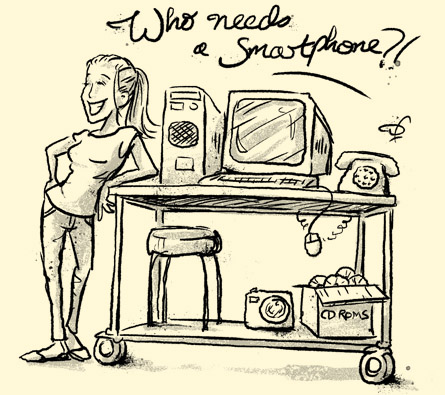 Who needs
a Smartphone?!
CD ROMS